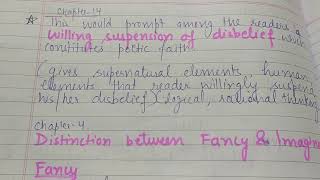 Chapter-14
☆ This would prompt among the readers a
willing suspension of disbelief which
constitutes poetic faith
(gives supernatural elements, human
elements that reader willingly suspend
his/her disbelief) logical, rational thinking
Chapter-4
Distinction between Fancy & Imagine
Fancy